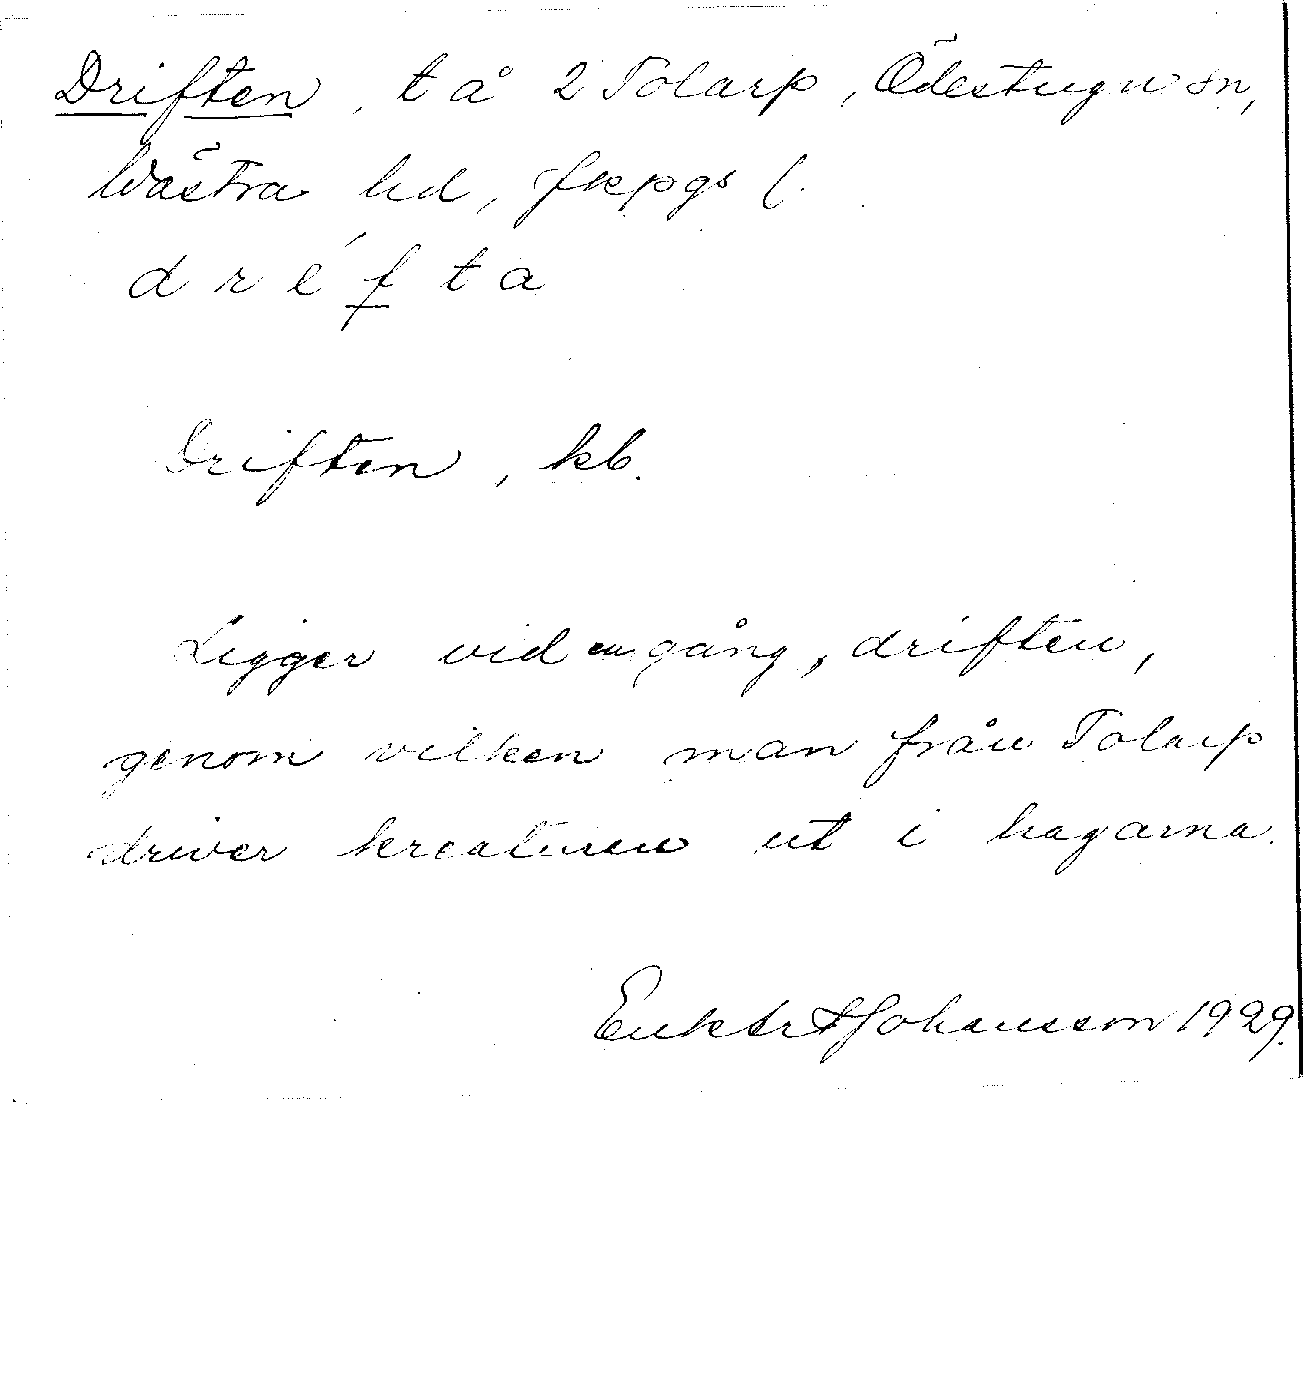 Driften, t å 2 Tolarp, Ödestugu sn,
Västra hd, Jkpgs l.
d r é f t a
Driften, kb.
Ligger vid en gång, driften,
genom vilken man från Tolarp
driver kreaturen ut i hagarna.
Johansson 1929.